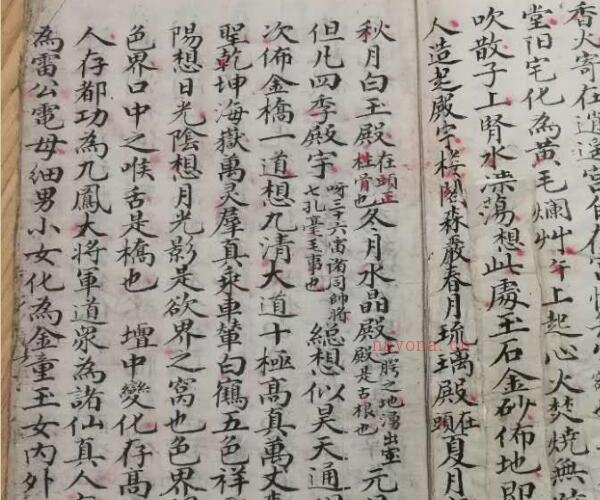 香火寄在逍遥宮自在宮
堂阳宅化為黃毛爛艸午上起心火焚燒無
吹散子上腎水蕩想此處玉石金砂佈地即
人造起殿宇楼閣森嚴春月琉璃殿在頭夏月
秋月白玉殿在頭正柱骨也冬月水晶殿上腭之地湧出宝殿是舌根也元
但凡四季殿宇呀三十六宿诸司帅将七孔毫毛事也總想似昊天通
次佈金橋一道想九清大道十極高真萬丈
聖乾坤海嶽萬灵羣真乘車輦白鶴五色祥
陽想日光陰想月光影是欲界之窩也色界
色界口中之喉舌是橋也 壇中變化存高
人存都功為九鳳大將軍道眾為諸仙真人
為雷公電母細男小女化為金童玉女内外
nayona.cn